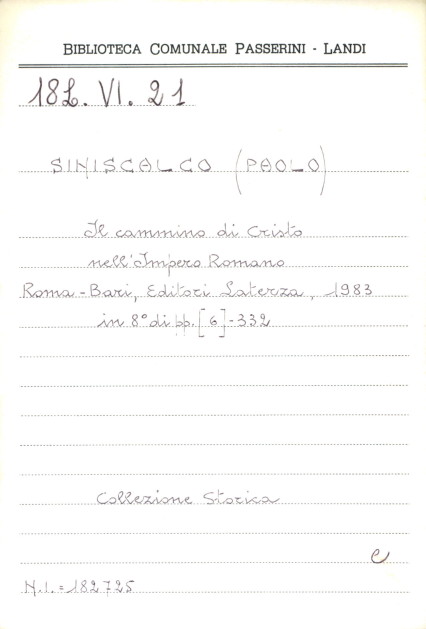 BIBLIOTECA COMUNALE PASSERINI - LANDI
18L. VI. 21
SINISCALCO (PAOLO)
Il cammino di Cristo
nell'Impero Romano
Roma-Bari, Editori Laterza, 1983
in 8° di pp. [6]-332
Collezione Storica
e
N.I. = 182725